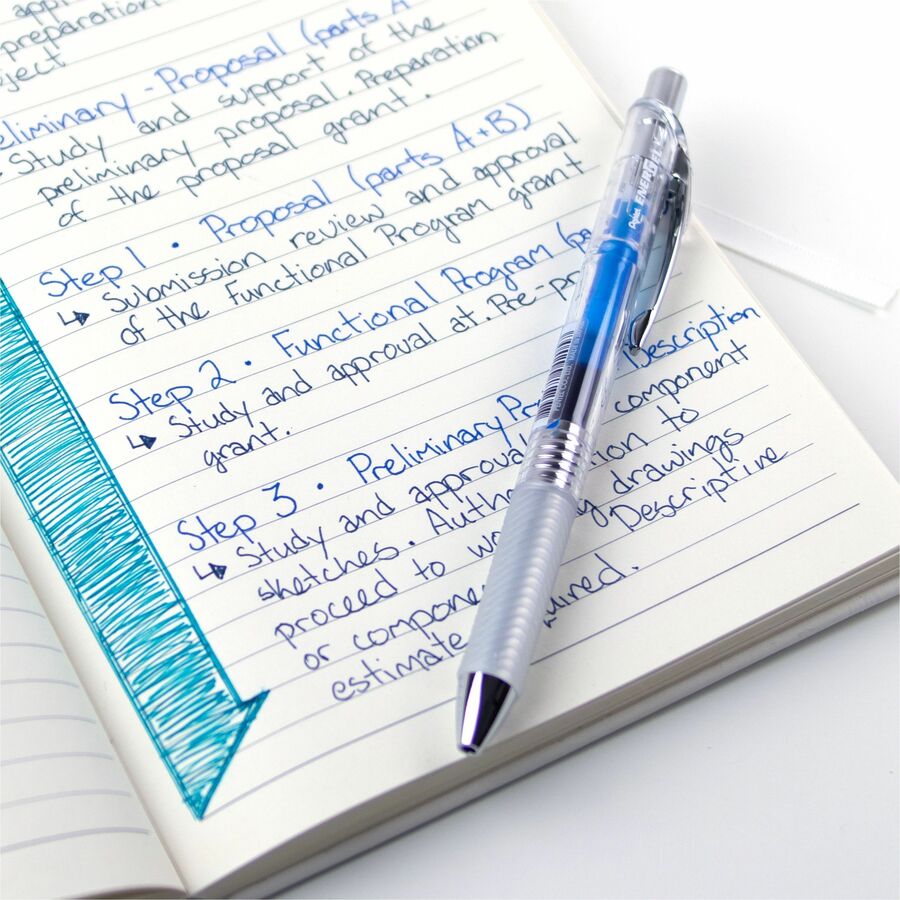 preparation
eliminary - Proposal (parts A
Study and support of the
preliminary proposal. Preparation
of the proposal grant.
Step 1 • Proposal (parts A+B)
↳ Submission review and approval
of the Functional Program grant
Step 2 • Functional Program (pa
↳ Study and approval at. Pre-pr
grant.
Step 3 • Preliminary Pr Description
↳ Study and approva component
sketches. Auth ion to
proceed to wo g drawings
or compone Descriptive
estimate uired.
Pentel ENERGEL